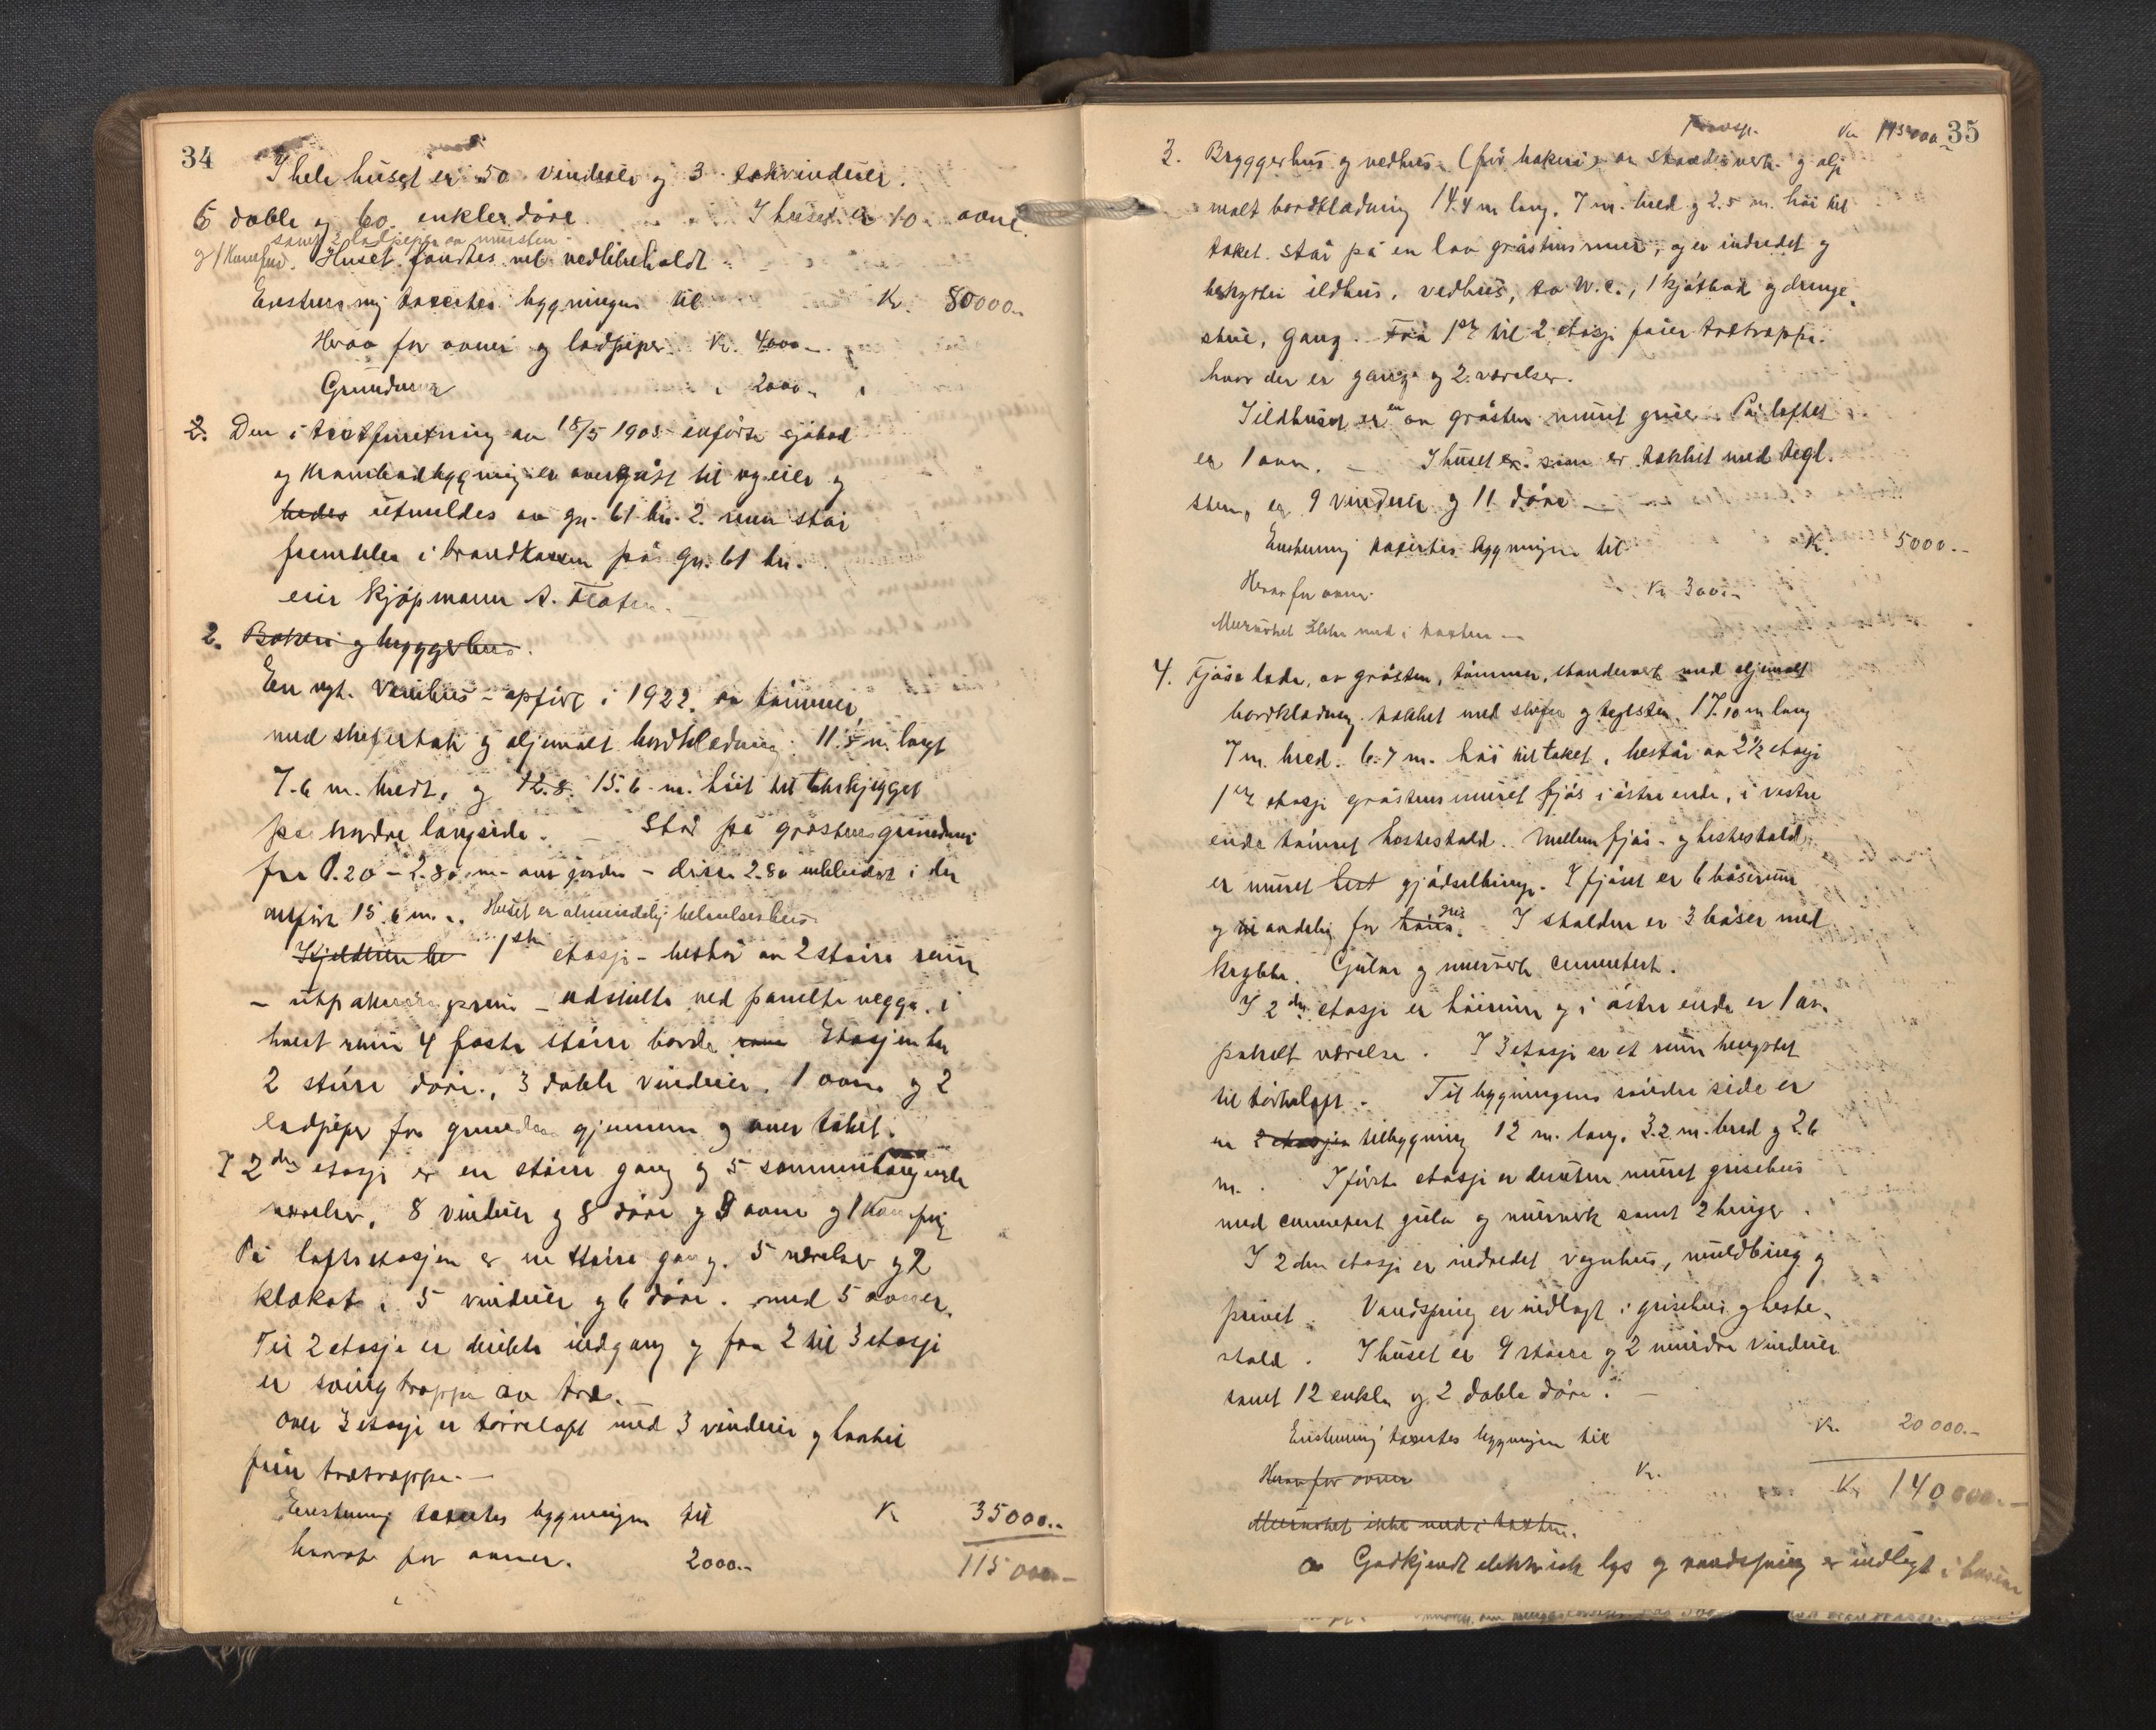 34
I hele huset er 50 vinduer og 3 takvinduer.
6 doble og 60 enkle döre I huset er 10 ovne
samt 2 ladpiper av mursten
og 1 Kamfur. Huset fandtes vel vedlikeholdt
Enstemmig taxertes bygningen til Kr. 80000.-
Herav for ovner og ladpiper Kr. 4000.-
Grundmur 2000.-
2. Den i takstforretning av 18/5 1908 anförte sjöbod
og Krambodbygning er overgåt til ny eier og
utmeldes av gr. 61 br. 2. men står
fremdeles i brandkassen på gr. 61 br.
eier Kjöpmann A. Flaten.
2. Bakeri og bryggerhus.
En nyt. Vånhus - opfört i 1922. av tömmer,
med skifertak og oljemalt bordklædning. 11.5 m. langt
7.6 m. bredt, og 12.8. 15.6 m. höit til takskjegget
på nordre langside. - Står på gråstensgrundmur
fra 0.20 - 2.80 m. over jorden - disse 2.80 inkludert i den
anförte 15.6 m. Huset er almindelig beboelseshus
1ste etasje - består av 2 större rum
- adskilte ved panelte vegge. i
hvert rum 4 faste större borde Etasjen har
2 större döre., 3 doble vinduer. 1 ovn og 2
ladpiper fra grunden gjennem og over taket.
I 2den etasje er en större gang og 5 sammenhængende
værelser, 8 vinduer og 8 döre og 3 ovne og 1 Kamfur
På loftsetasjen er en större gang. 5 værelser og 2
klokot. 5 vinduer og 6 döre. med 5 ovner.
Til 2 etasje er direkte indgang og fra 2 til 3 etasje
er svingtrappe av træ.
Over 3 etasje er törreloft med 3 vinduer og hvortil
förer trætrappe.-
Enstemmig taxertes bygningen til Kr 35000.-
hvorav for ovner. 2000.-
115000.-
35
Transp. Kr 115000.-
3. Bryggerhus og vedhus (för bakeri) av standerverk og olje
malt bordklædning 14.4 m lang, 7 m. bred og 2.5 m. höi til
taket. Står på en lav gråstensmur, og er indredet og
benyttes ildhus, vedhus, to W.C., 1 kjötbod og drenge-
stue, gang. Fra 1ste til 2 etasje förer trætrappe.
hvor der er gange og 2 værelser.
I ildhuset er en av gråsten muret grue. På loftet
er 1 ovn. - I huset som er tækket med tegl-
sten, er 9 vinduer og 11 döre -
Enstemmig taxertes bygningen til Kr. 5000.-
Herav for ovner Kr 300.-
Murverket ikke med i taxten -
4. Fjös o lade, av gråsten, tömmer, standerverk med oljemalt
bordklædning. tækket med skifer og teglsten. 17.10 m lang
7 m. bred. 6.7 m. höi til taket, består av 2 1/2 etasje
1ste etasje gråstensmuret fjös i östre ende, i vestre
ende tömret hestestald. Mellem fjös- og hestestald
er muret gjödselbinge. I fjöset er 6 båserum
og avdeling for höns. gris I stalden er 3 båser med
krybbe. Gulve og murverk cementert.
I 2den etasje er höirum og i östre ende er 1 av-
panelt værelse. I 3 etasje er et rum benyttet
til törkeloft. Til bygningens söndre side er
en 2 etasjes tilbygning 12 m. lang, 3.2 m. bred og 2.6
m. I förste etasje er desuten muret grisehus
med cementert gulv og murverk samt 2 binger.
I 2den etasje er indredet vognhus, muldbing og
privet. Vandspring er indlagt i grisehus og heste-
stald. I huset er 9 större og 2 mindre vinduer
samt 12 enkle og 2 doble döre. -
Enstemmig taxertes bygningen til Kr. 20000.-
Herav for ovner Kr.
Kr 140000.-
Murverket ikke med i taxten.
Godkjendt elektrisk lys og vandspring er indlagt i husene